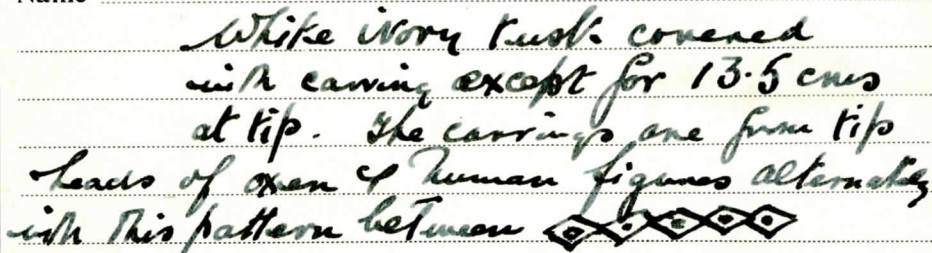 Name
White ivory tusk covered
with carving except for 13.5 cms
at tip. The carvings are from tip
heads of oxen & human figures alternately
with this pattern between